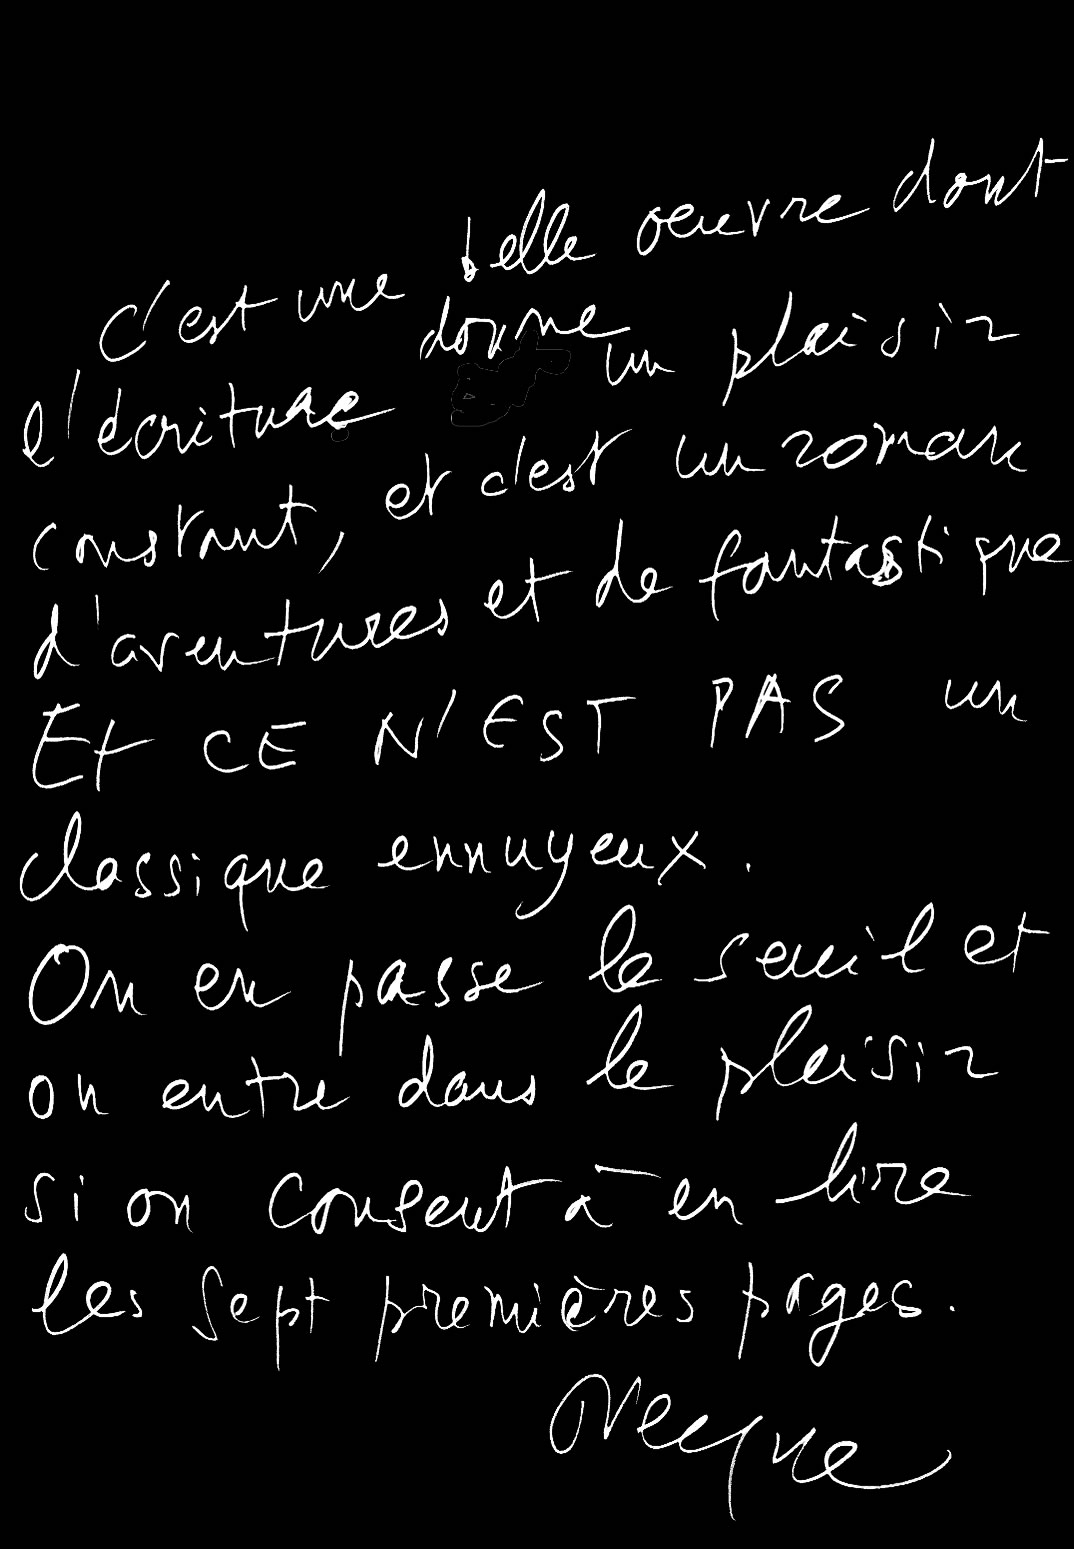 C'est une belle oeuvre dont
l'écriture donne un plaisir
constant, et c'est un roman
d'aventures et de fantastique
Et CE N'EST PAS un
classique ennuyeux.
On en passe le seuil et
on entre dans le plaisir
si on consent à en lire
les sept premières pages.